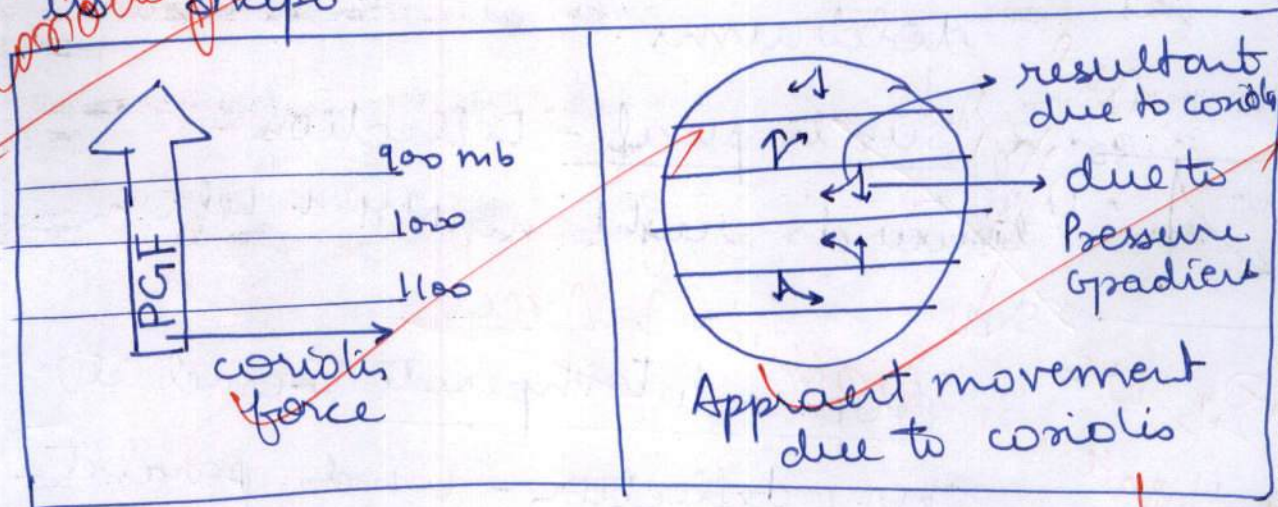 900 mb
1000
1100
PGF
coriolis
force
resultant
due to coriolis
due to
Pressure
Gradient
Appraent movement
due to coriolis